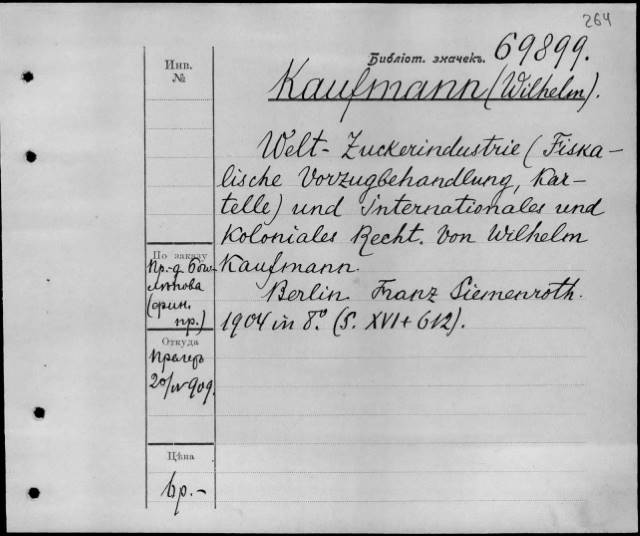 264
Библіот. значекъ. 69899.
Kaufmann (Wilhelm).
Welt-Zuckerindustrie (Fiska-
lische Vorzugbehandlung, Kar-
telle) und Internationales und
Koloniales Recht. Von Wilhelm
Kaufmann.
Berlin. Franz Siemenroth.
1904 in 8.° (S. XVI + 612).
Инв.
№
По заказу
Пр.-д.
(фин.
пр.)
Откуда
Прагеръ
20/IV 909.
Цѣна
6р.-